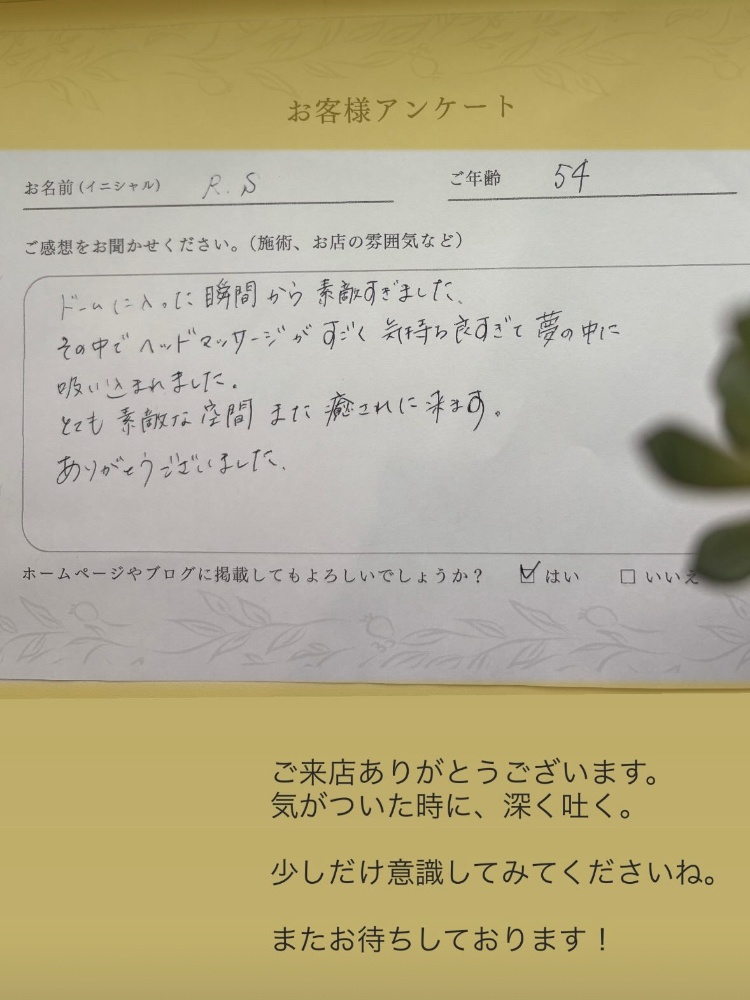 お客様アンケート
お名前(イニシャル) R.S ご年齢 54
ご感想をお聞かせください。(施術、お店の雰囲気など)
ドームに入った瞬間から素敵すぎました、
その中でヘッドマッサージがすごく気持ち良すぎて夢の中に
吸い込まれました。
とても素敵な空間また癒されに来ます。
ありがとうございました、
ホームページやブログに掲載してもよろしいでしょうか? ☑はい □いいえ
ご来店ありがとうございます。
気がついた時に、深く吐く。
少しだけ意識してみてくださいね。
またお待ちしております!